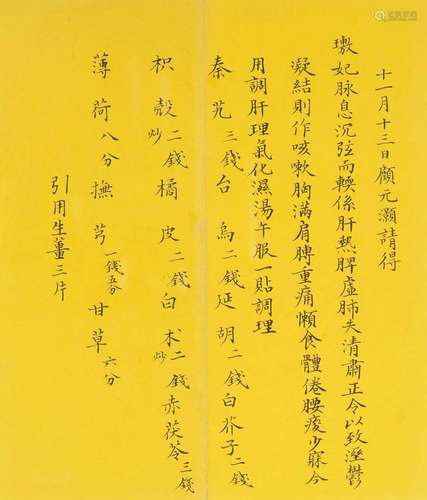 十一月十三日顧元灝請得
璷妃脉息沉弦而輭係肝熱脾虛肺失清肅正令以致溼鬱
凝結則作咳嗽胸滿肩膊重痛懶食體倦腰痠少寐今
用調肝理氣化濕湯午服一貼調理
秦艽三錢台烏二錢延胡二錢白芥子二錢
枳殼二錢炒橘皮二錢白术二錢炒赤茯苓三錢
薄荷八分撫芎一錢五分甘草六分
引用生薑三片